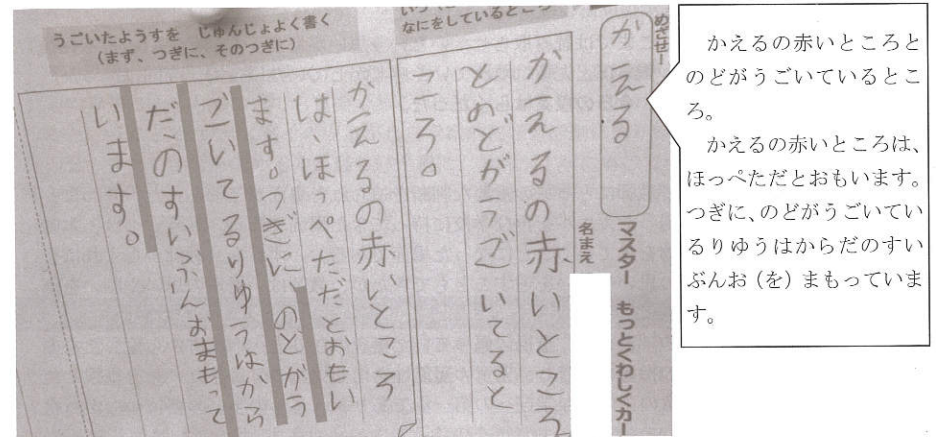 めざせー
かえる
マスター もっとくわしくカー
名まえ
なにをしているところ
かえるの赤いところ
とのどがうご いてると
ころ。
うごいたようすを じゅんじょよく書く
(まず、つぎに、そのつぎに)
かえるの赤いところ
は、ほっぺただとおもい
ます。つぎに、のどがう
ごいてるりゆうはから
だのすいぶんおまもって
います。
かえるの赤いところと
のどがうごいているとこ
ろ。
かえるの赤いところは、
ほっぺただとおもいます。
つぎに、のどがうごいてい
るりゆうはからだのすい
ぶんお(を)まもっていま
す。